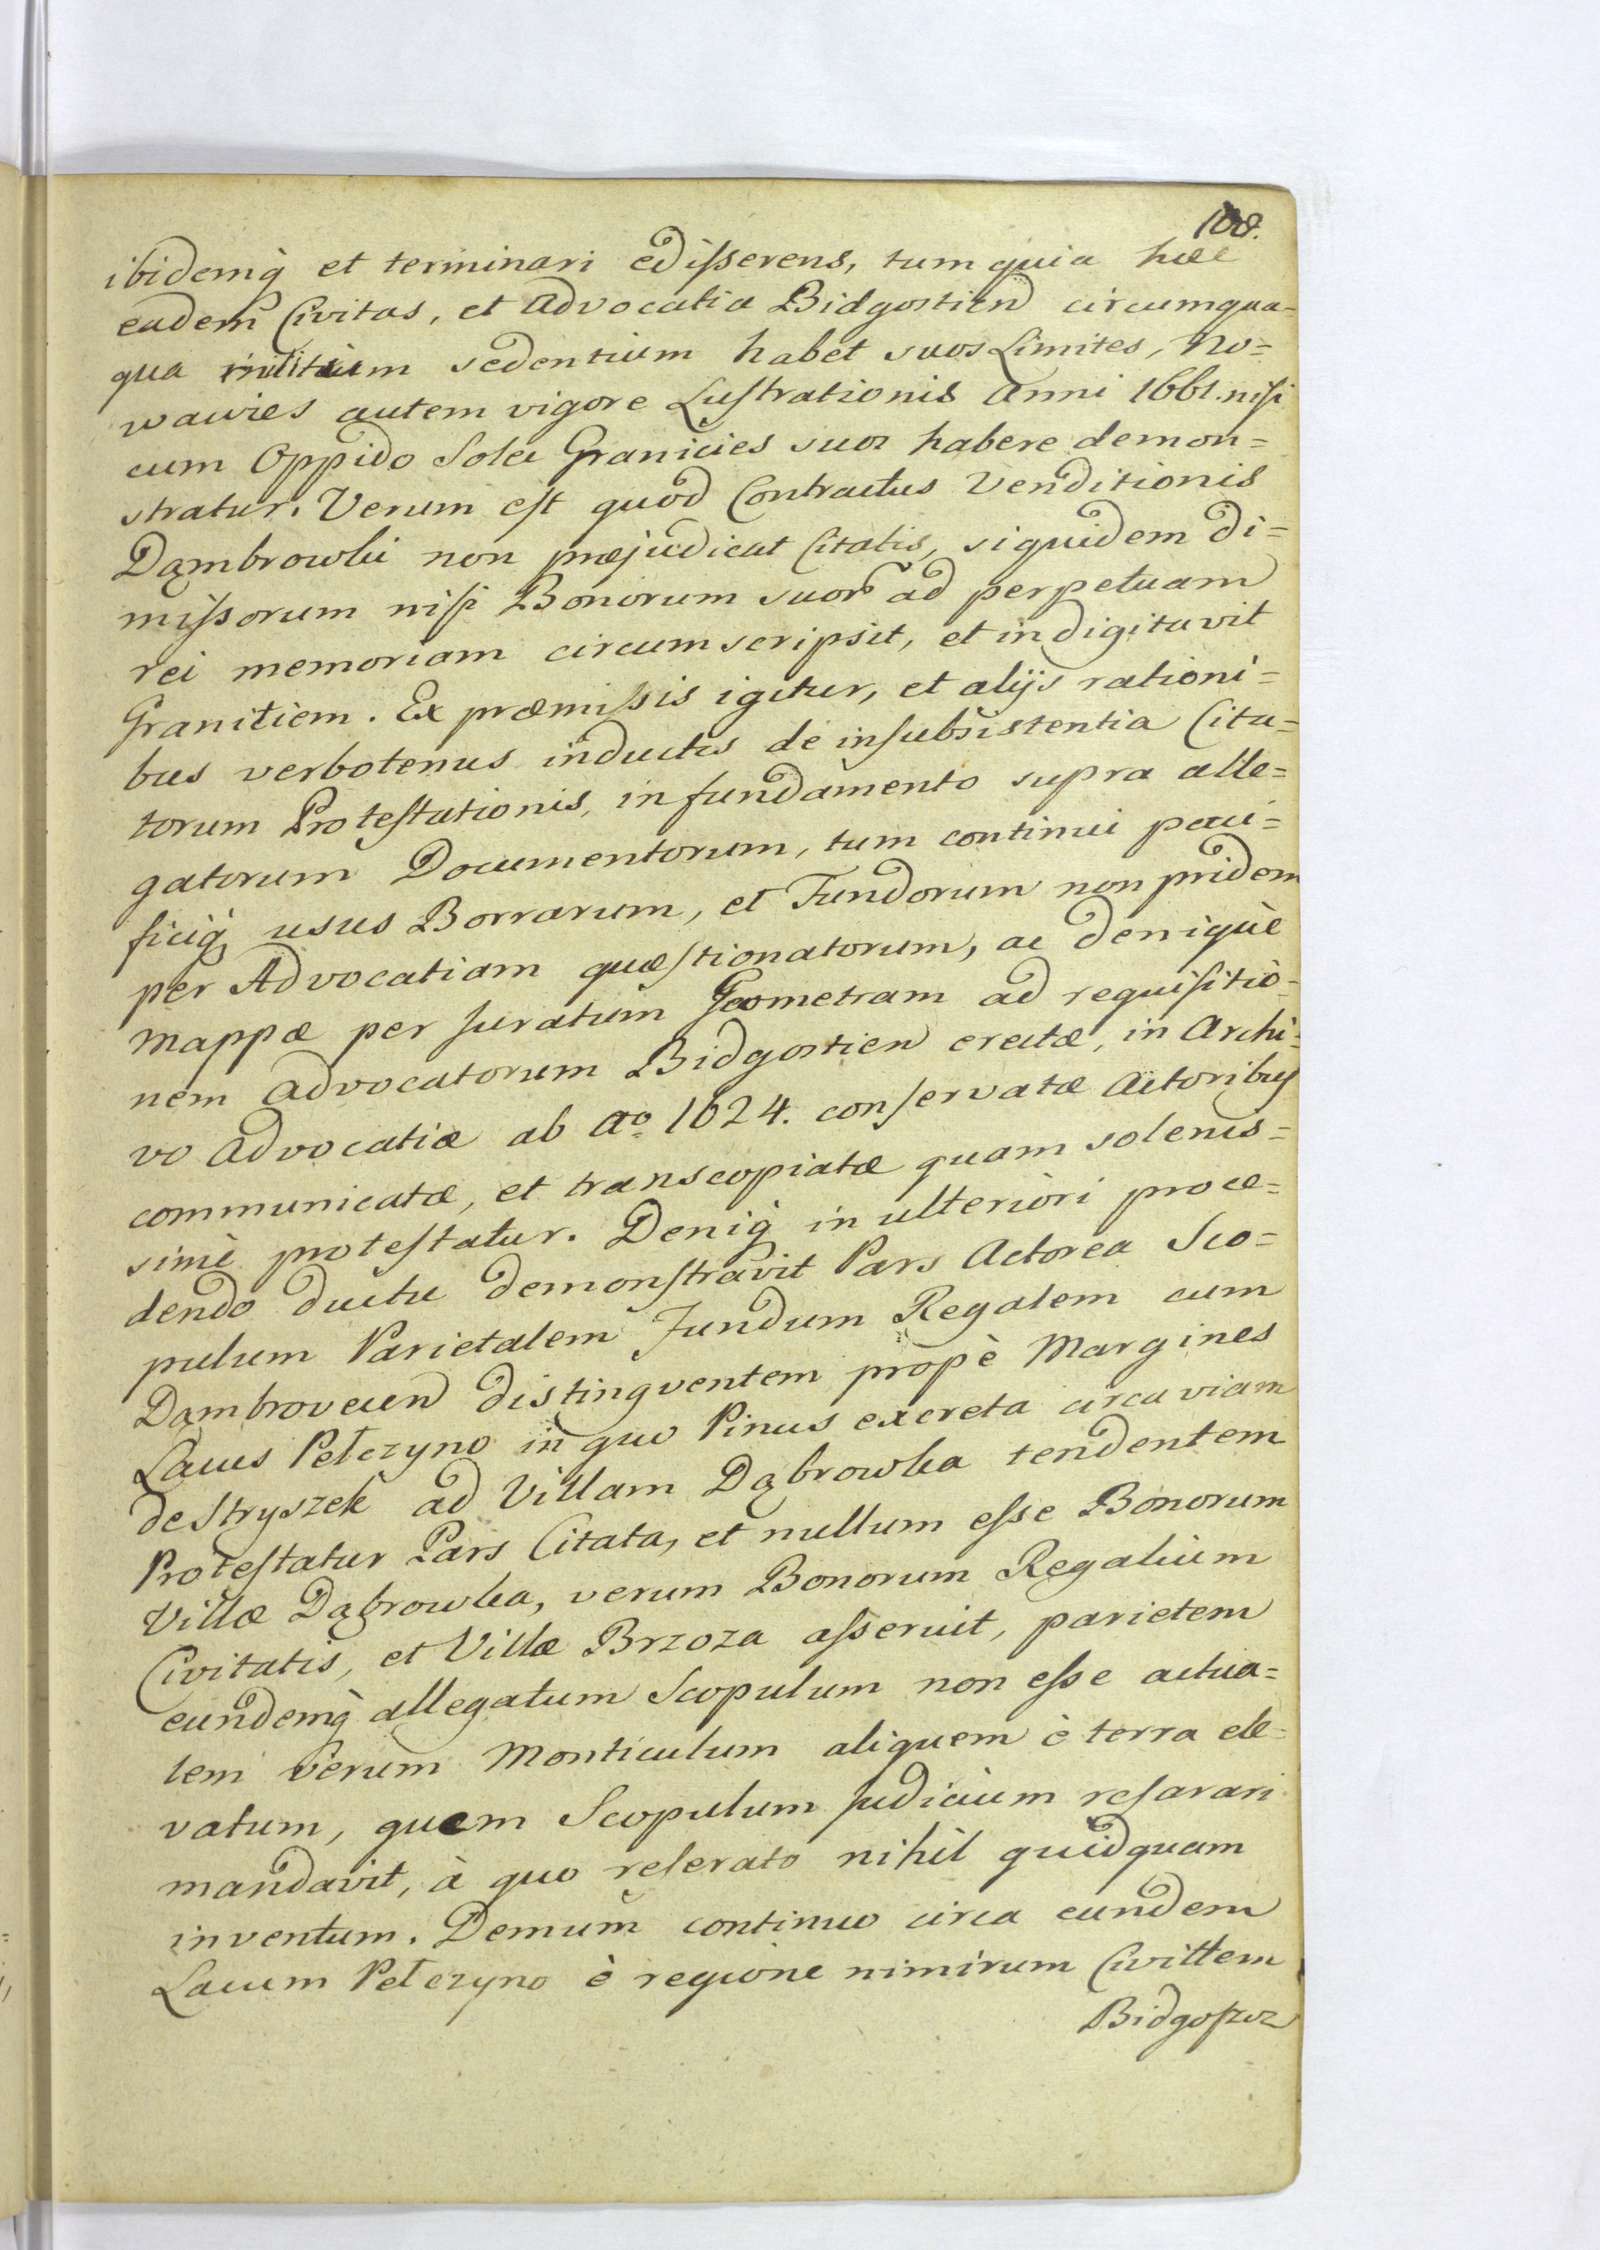 108.
ibidemq̀ et terminari edisserens, tum quia hæc
eadem Civitas, et Advocatia Bidgostien circumqua=
qua militum sedentium habet suos Limites, No=
wawies autem vigore Lustrationis Anni 1661. nisi
cum Oppido Solec Granicies suos habere demon=
stratur. Verum est quod Contractus Venditionis
Dąmbrowki non præjudicat Citatis, siquidem di=
missorum nisi Bonorum suor ad perpetuam
rei memoriam circumscripsit, et indigitavit
Granitiem. Ex præmissis igitur, et alijs rationi=
bus verbotenus inductis de insubsistentia Cita=
torum Protestationis, in fundamento supra alle=
gatorum Documentorum, tum continui paci=
ficiq̀ usus Borrarum, et Fundorum non pridem
per Advocatiam quæstionatorum, ac deniquè
Mappæ per Juratum Geometram ad requisitio=
nem Advocatorum Bidgostien erectæ, in Archi=
vo Advocatiæ ab Ao 1624. conservatæ Actoribus
communicatæ, et transcopiatæ quam solenis=
simè protestatur. Deniq̀ in ulteriori proce=
dendo ductu demonstravit Pars Actorea Sco=
pulum Parietalem Fundum Regalem cum
Dąmbrovecen distingventem propè Margines
Lacus Pełczyno in quo Pinus excreta circa viam
de Stryszek ad Villam Dąbrowka tendentem
Protestatur Pars Citata, et nullum esse Bonorum
Villæ Dąbrowka, verum Bonorum Regalium
Civitatis, et Villæ Brzoza asseruit, parietem
eundemq̀ allegatum Scopulum non esse actua=
lem verum Monticulum aliquem è terra ele=
vatum, quem Scopulum Judicium resarari
mandavit, à quo reserato nihil quidquam
inventum. Demum continuo circa eundem
Lacum Pełczyno è regione nimirum Civittem
Bidgoszcz